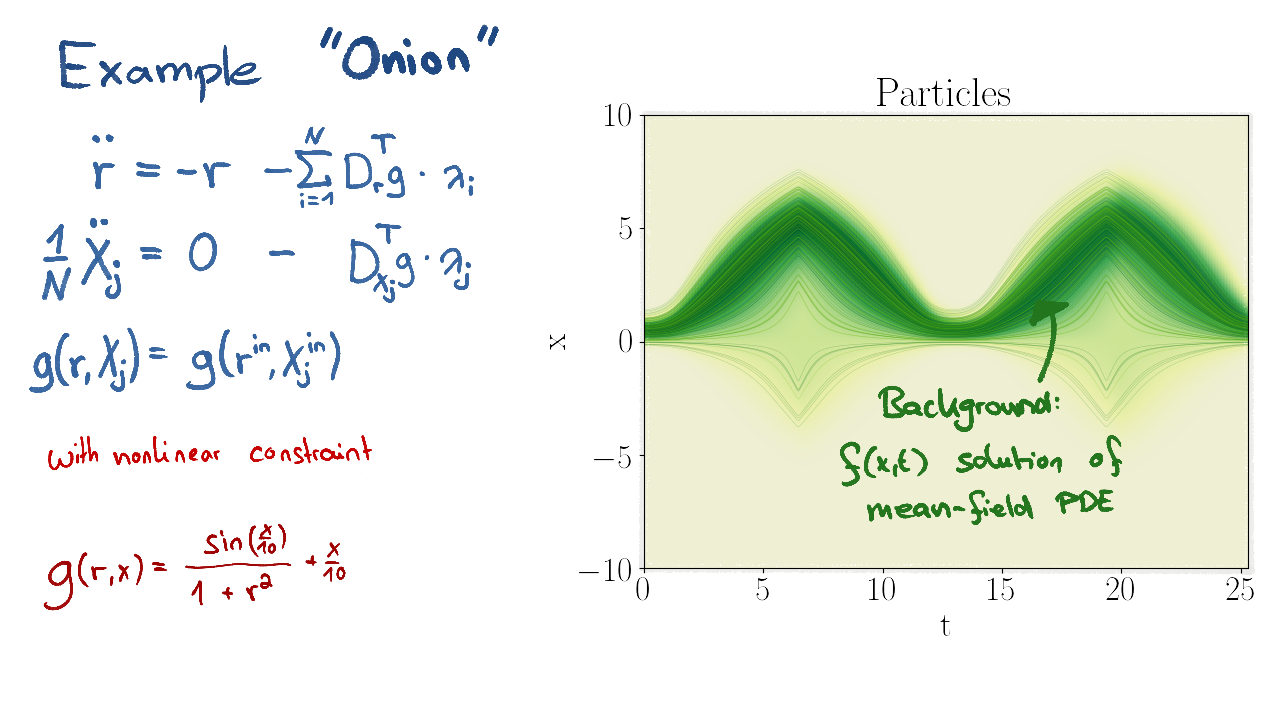 Example "Onion"
r̈ = -r - ∑_{i=1}^{N} D_r^T g · λ_i
1/N Ẍ_j = 0 - D_{X_j}^T g · λ_j
g(r, X_j) = g(r^{in}, X_j^{in})
with nonlinear constraint
g(r,x) = sin(x/10) / (1 + r²) + x/10
Particles
10
5
0
−5
−10
x
0 5 10 15 20 25
t
Background:
f(x,t) solution of
mean-field PDE